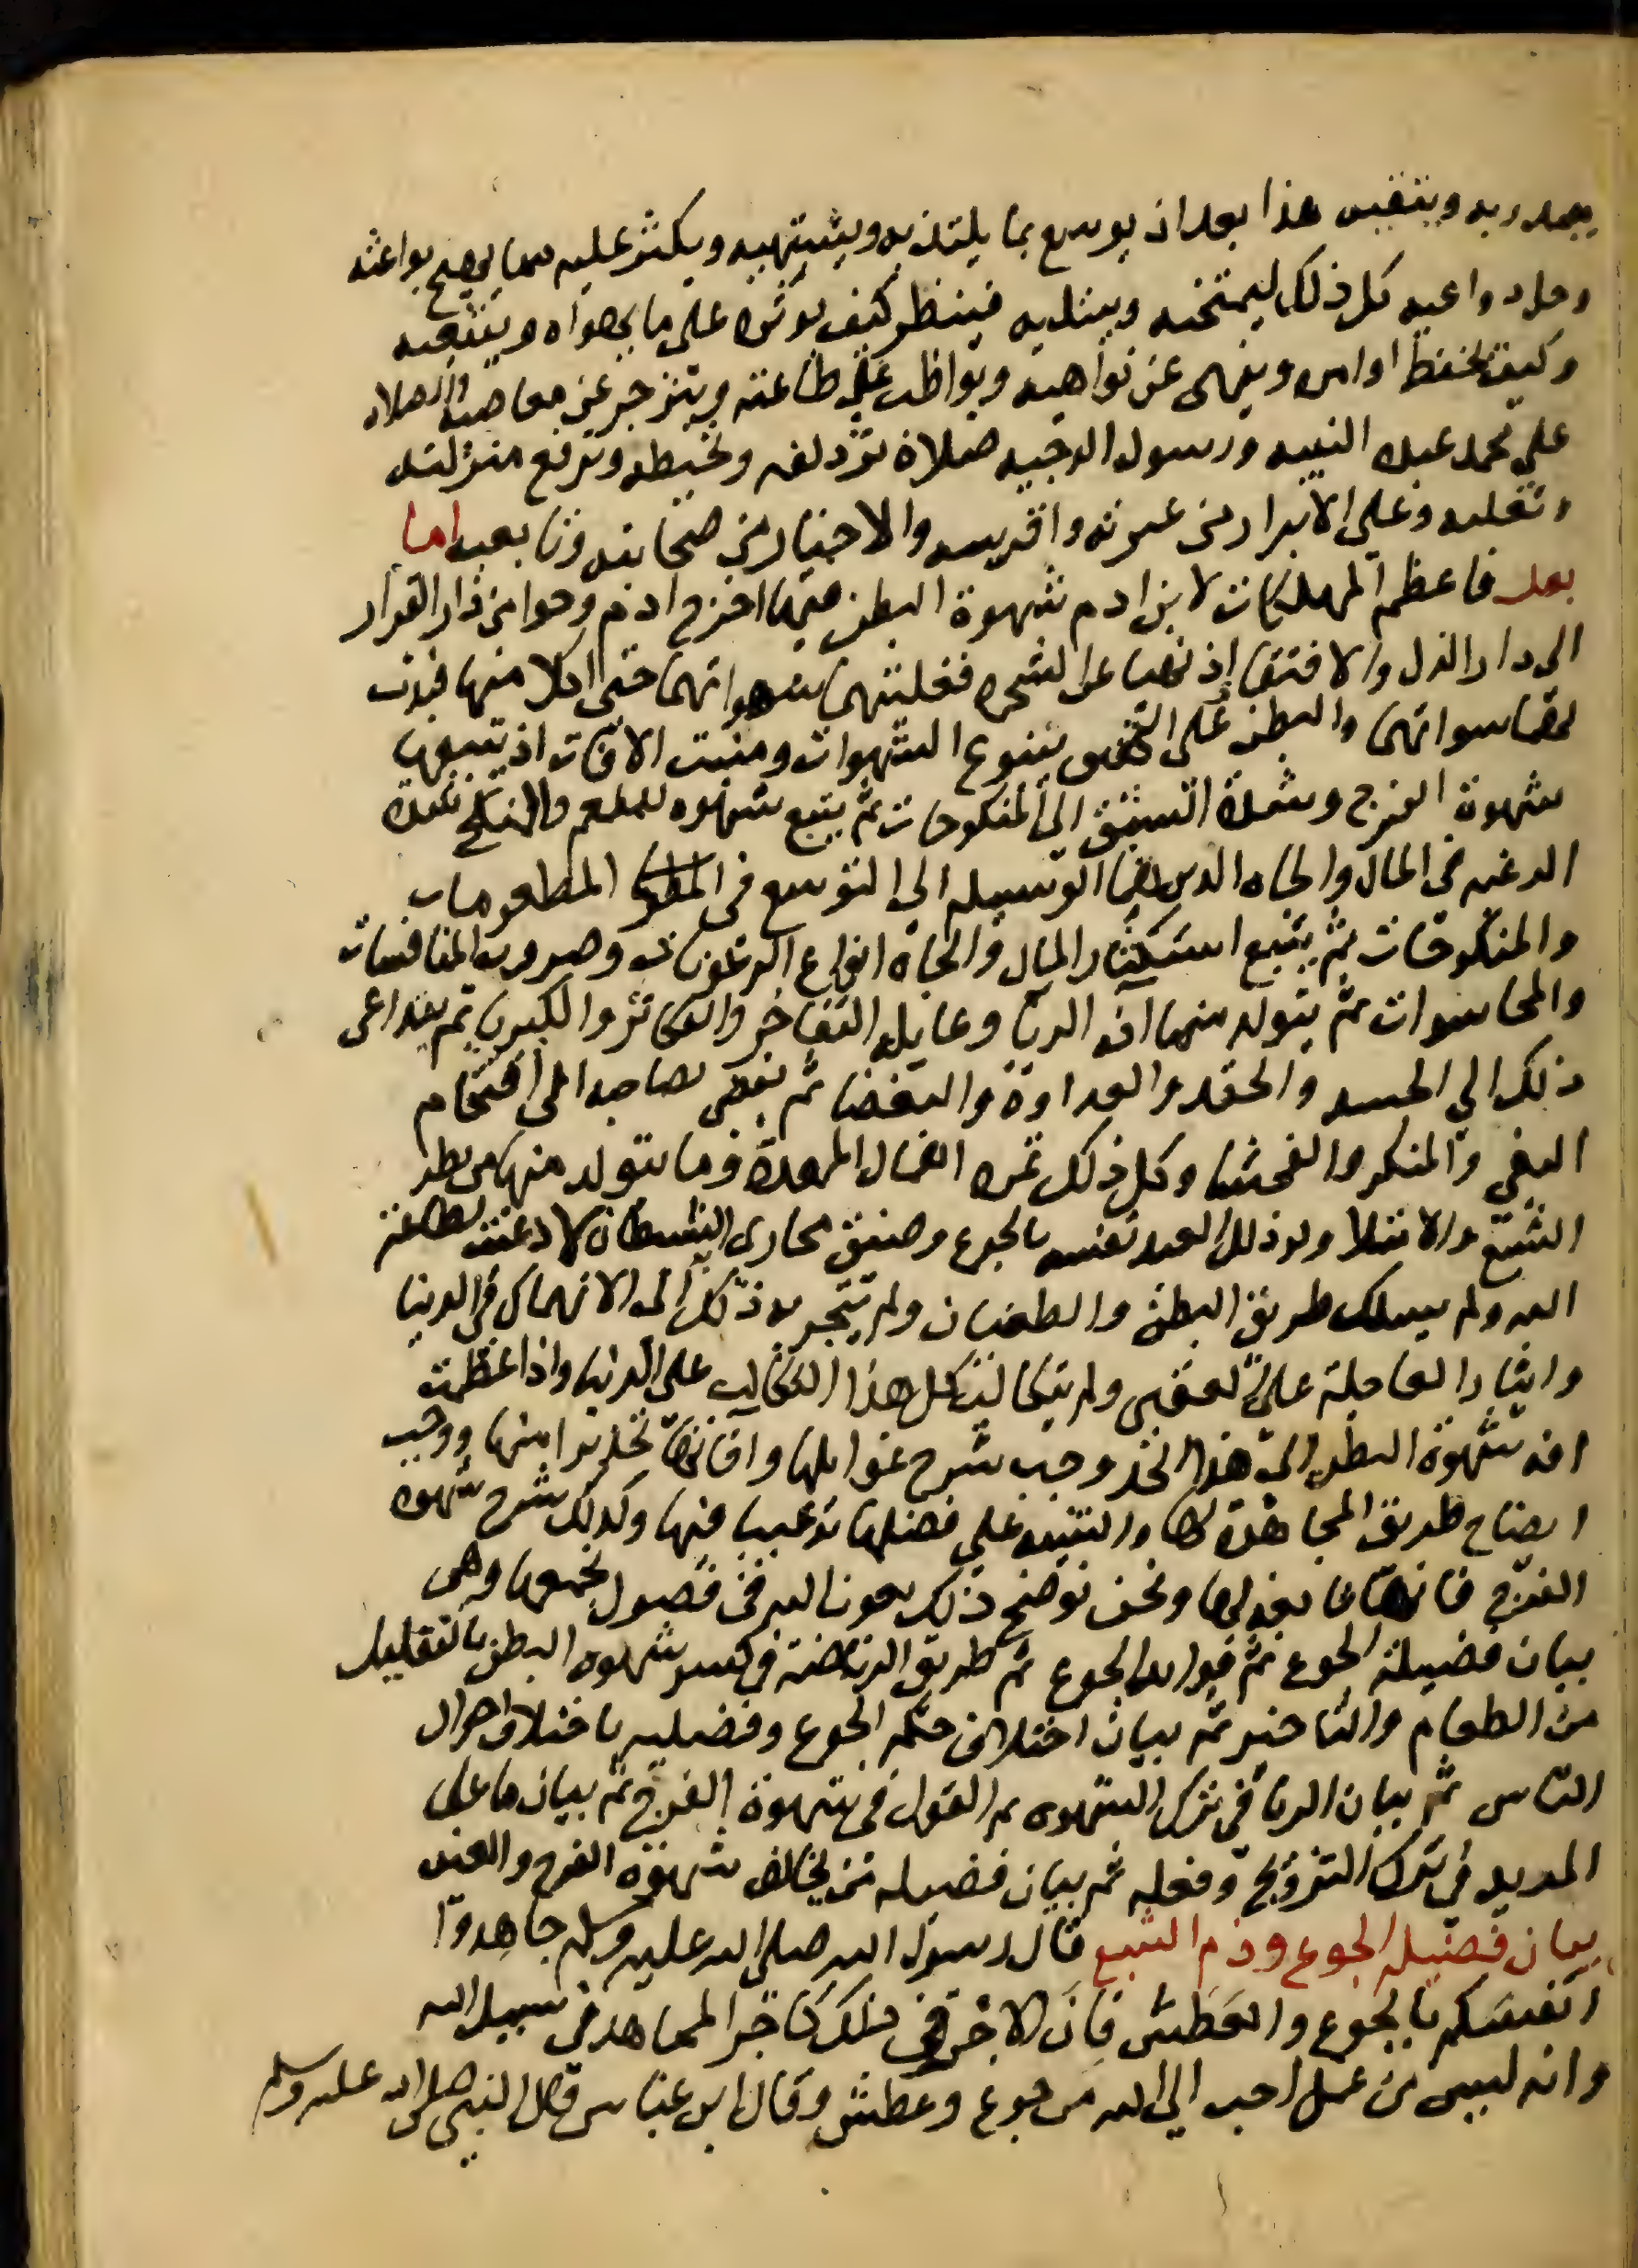 يعبد ربه ويتقيه هذا بعد ان يوسع بما يلتذ به ويشتهيه ويكثر عليه مما يهيج بواعثه
ودواعيه كل ذلك ليمتحنه ويبتليه فينظر كيف يوثره على ما يهواه وينتحيه
وكيف يحفظ اوامره وينهى عن نواهيه ويواظب على طاعته وينزجر عن معاصيه والصلاه
على محمد عبده النبيه ورسوله الوجيه صلاة تزدلفه وتحيطه وترفع منزلته
وتعليه وعلى الابرار من عترته واقربيه والاخيار من صحابته وتابعيه اما
بعد فاعظم المهلكات لابن ادم شهوة البطن فبها اخرج ادم وحوا من دار القرار
الى دار الذل والافتقار اذ نهيا عن الشجره فغلبتهما شهواتهما حتى اكلا منها فبدت
لهما سواتهما والبطن على التحقيق ينبوع الشهوات ومنبت الافات اذ يتبعها
شهوة الفرج وشدة الشبق الى المنكوحات ثم يتبع شهوه المطعم والمنكح شدة
الرغبه في المال والجاه الذين هما الوسيله الى التوسع في المطعومات
والمنكوحات ثم يتبع استكثار المال والجاه انواع الرعونات وضروب المنافسات
والمحاسدات ثم يتولد منهما افه الريا وغايله التفاخر والتكاثر والكبريا ثم يتداعى
ذلك الى الحسد والحقد والعداوة والبغضا ثم يفضى بصاحبه الى اقتحام
البغي والمنكر والفحشا وكل ذلك ثمره اهمال المعدة وما يتولد منها من بطر
الشبع والامتلا ولو ذلل العبد نفسه بالجوع وضيق مجارى الشيطان لاذعنت لطاعة
الله ولم يسلك طريق البطر والطغيان ولم ينجر به ذلك الى الانهماك في الدنيا
وايثار العاجلة على العقبى ولم يتكالب كل هذا التكالب على الدنيا واذا عظمت
افه شهوة البطن الى هذا الحد وجب شرح غوايلها وافاتها تحذيرا منها ووجب
ايضاح طريق المجاهدة لها والتنبيه على فضلها ترغيبا فيها وكذلك شرح شهوه
الفرج فانها تابعه لها ونحن نوضح ذلك بعون الله في فصول يجمعها وهى
بيان فضيلة الجوع ثم فوايد الجوع ثم طريق الرياضة في كسر شهوه البطن بالتقليل
من الطعام والتاخير ثم بيان اختلاف حكم الجوع وفضليه باختلاف احوال
الناس ثم بيان الريا في ترك الشهوه ثم القول في شهوة الفرج ثم بيان ما على
المريد في ترك التزويج وفعله ثم بيان فضيله من يخالف شهوة الفرج والعين
بيان فضيله الجوع وذم الشبع قال رسول الله صلى الله عليه وسلم جاهدوا
انفسكم بالجوع والعطش فان الاجر في ذلك كاجر المجاهد في سبيل الله
وانه ليس من عمل احب الى الله من جوع وعطش وقال ابن عباس قال النبي صلى الله عليه وسلم